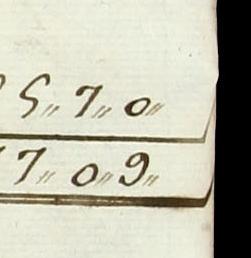 5〃 7〃 0〃
7〃 0〃 9〃